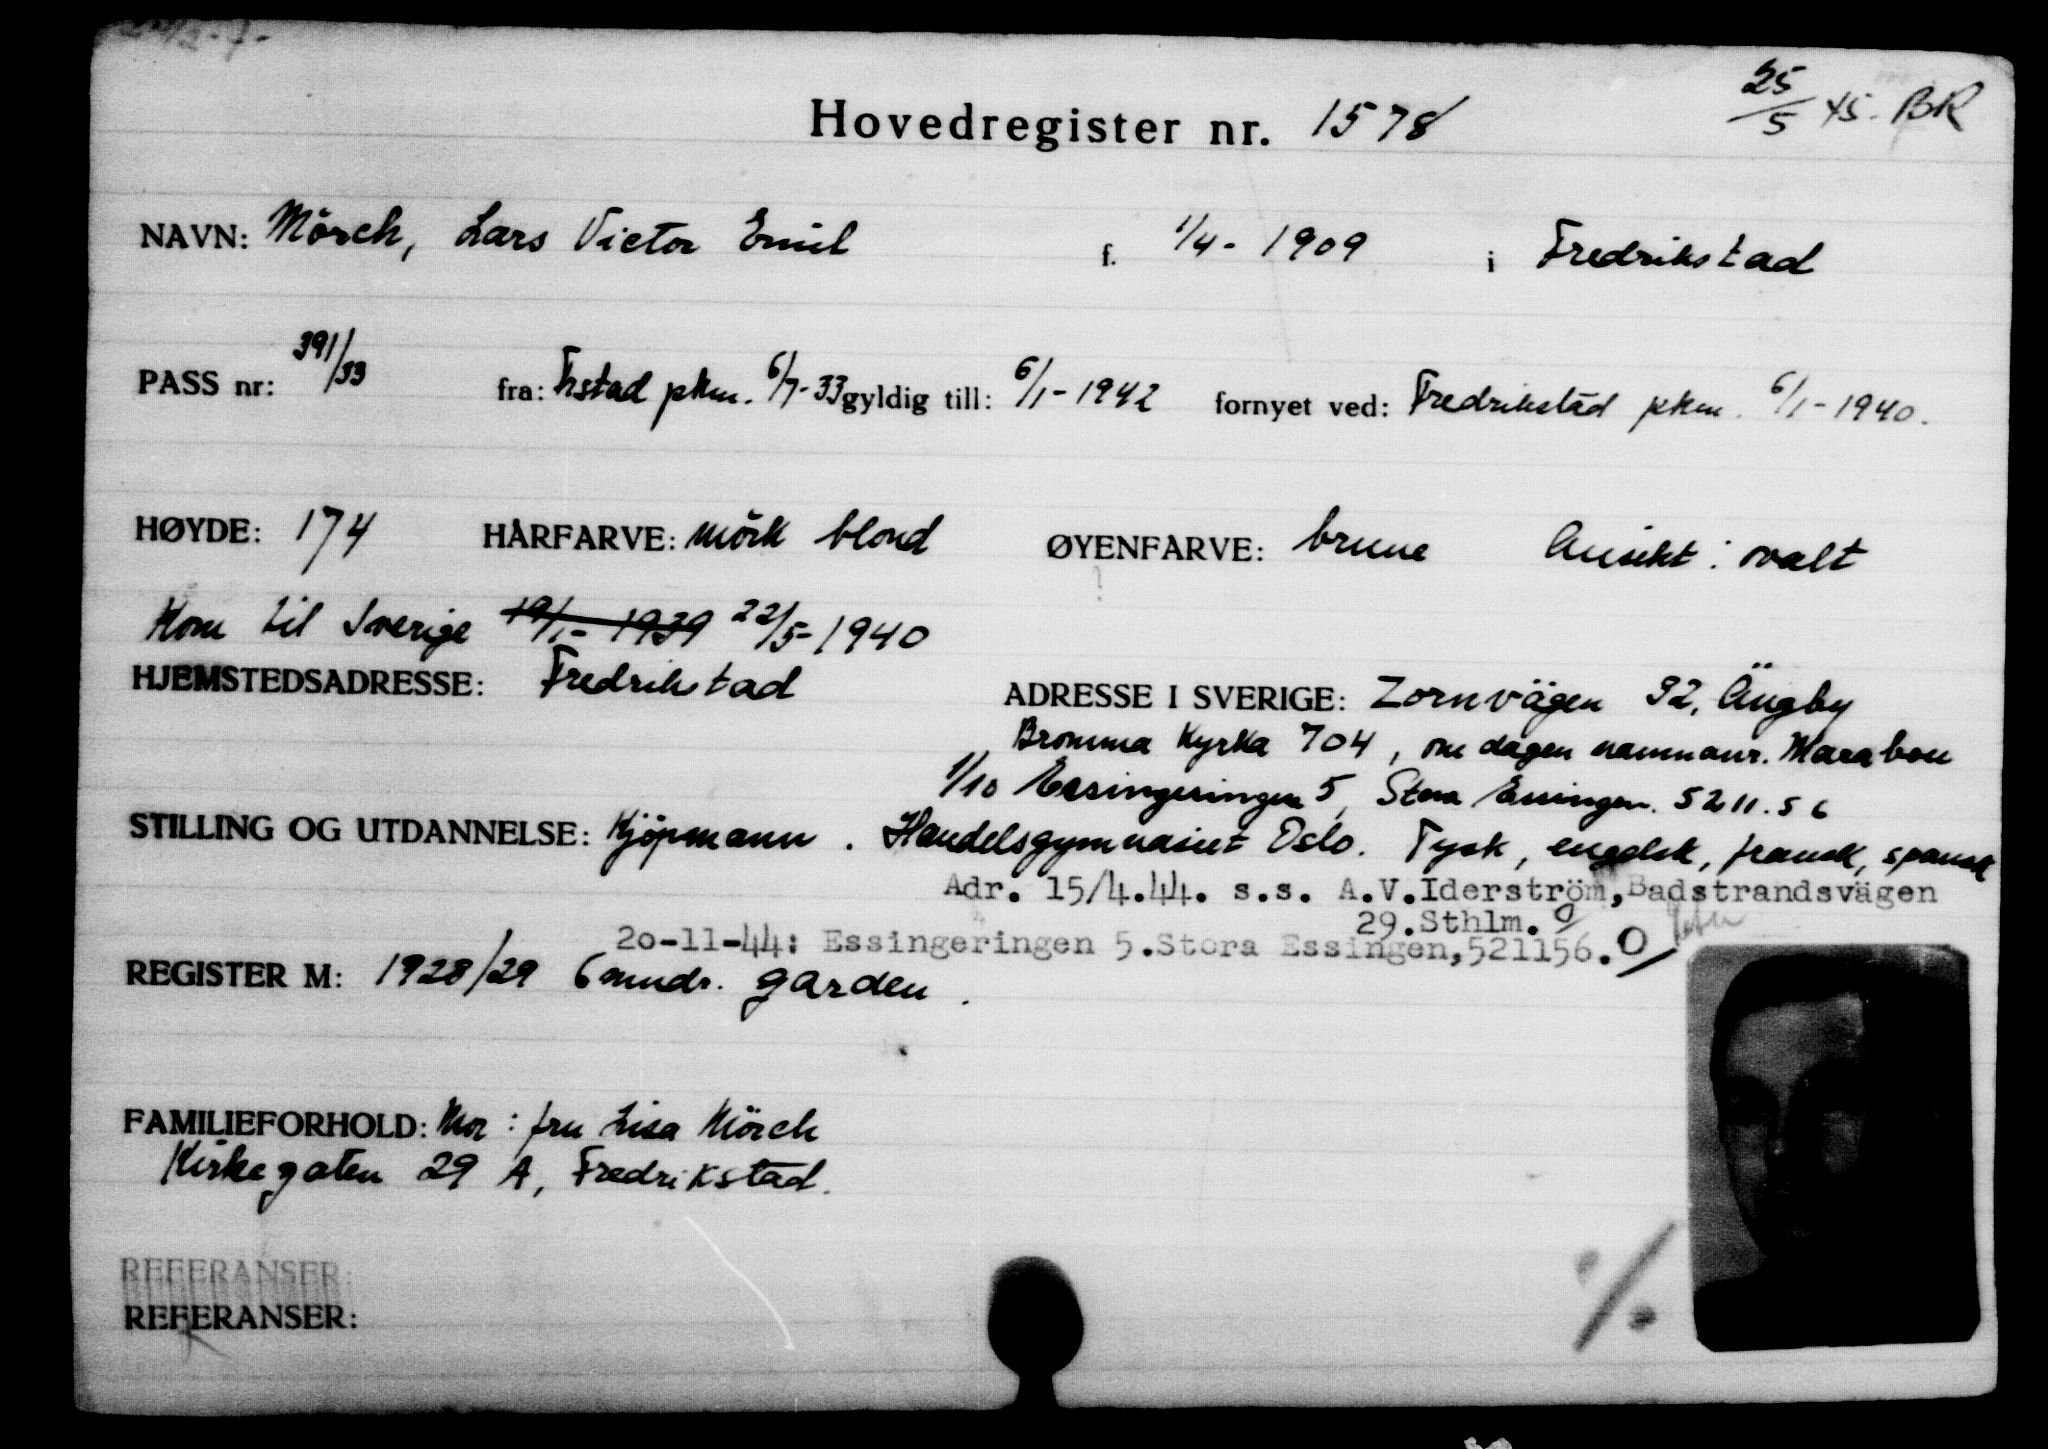 25/5 45. BR
Hovedregister nr. 1578
NAVN: Mörch, Lars Victor Emil f. 1/4 - 1909 i Fredrikstad
PASS nr: 391/33 fra: Frstad pkm. 6/7-33 gyldig till: 6/1-1942 fornyet ved: Fredrikstad pkm. 6/1-1940.
HØYDE: 174 HÅRFARVE: mörk blond ØYENFARVE: brune Ansikt: ovalt
Kom til Sverige 19/1- 1939 22/5-1940
HJEMSTEDSADRESSE: Fredrikstad ADRESSE I SVERIGE: Zornvägen 32, Ängby
Bromma Kyrka 704, om dagen namnanr. Marabou
1/10 Essingeringen 5, Stora Essingen. 5211.56
STILLING OG UTDANNELSE: Kjöpmann. Handelsgymnasiet Oslo. Tysk, engelsk, fransk, spansk
Adr. 15/4.44. s.s. A.V.Iderström,Badstrandsvägen
29.Sthlm.
20-11-44: Essingeringen 5.Stora Essingen,521156.
REGISTER M: 1928/29 6 mndr. garden.
FAMILIEFORHOLD: Mor: fru Lisa Mörch
Kirkegaten 29 A, Fredrikstad.
REFERANSER:
REFERANSER: